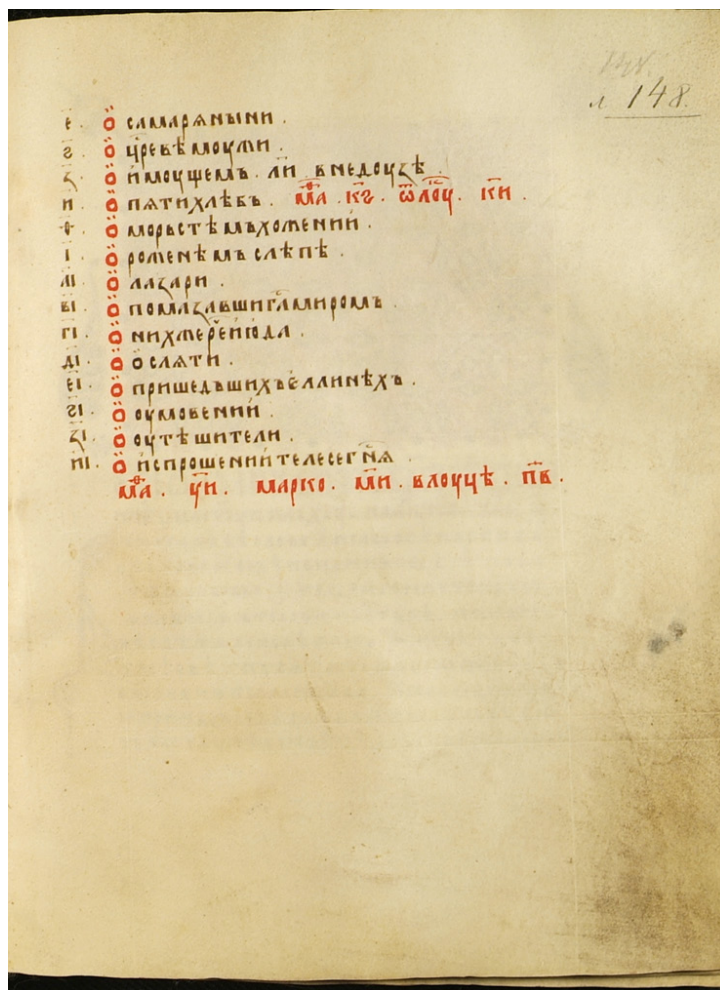 л 148.
є҃ . ѽ самарѧныни .
ѕ҃ . ѽ цр҃евѣ моужи .
з҃ . ѽ и҆моущемъ . л҃и . в недоузѣ .
и҃ . ѽ пѧти хлѣбъ . мѳ҃а . кѕ҃ . ѿ лоук . ки҃ .
ѳ҃ . ѽ морьстѣмъ хоженїи .
і҃ . ѽ роженѣмъ слѣпѣ .
аі҃ . ѽ лазари .
ві҃ . ѽ помазавши г҃а миромъ .
гі҃ . ѽ нихже рече і҆ю҆да .
ді҃ . ѽ ѻ҆слѧти .
еі҃ . ѽ пришедъшихъ є҆ллинѣхъ .
ѕі҃ . ѽ оумовении .
зі҃ . ѽ оутѣшители .
иі҃ . ѽ и҆спрошении телесе г҃нѧ .
мѳ҃а . ѯ҃и . марко . м҃и . в лоуцѣ . п҃в .